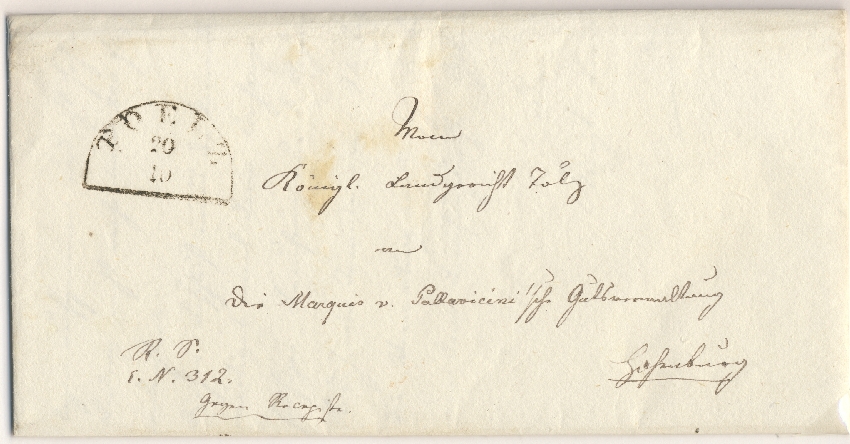 TOELZ
20
10
Vom
Königl. Landgericht Tölz
an
die Marquis v. Pallavicini'sche Gutsverwaltung
Hohenburg
R. S.
E. N. 312.
Gegen Recepisse.